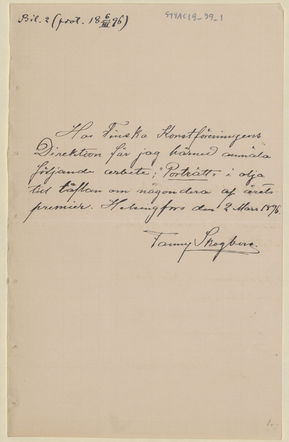 Bil. 2 (prot. 18 6/III 96)
Hos Finska Konstföreningens
Direktion får jag härmed anmäla
följande arbete; "Porträtt" i olja
till täflan om någondera af årets
premier. Helsingfors den 2 Mars 1896.
Fanny